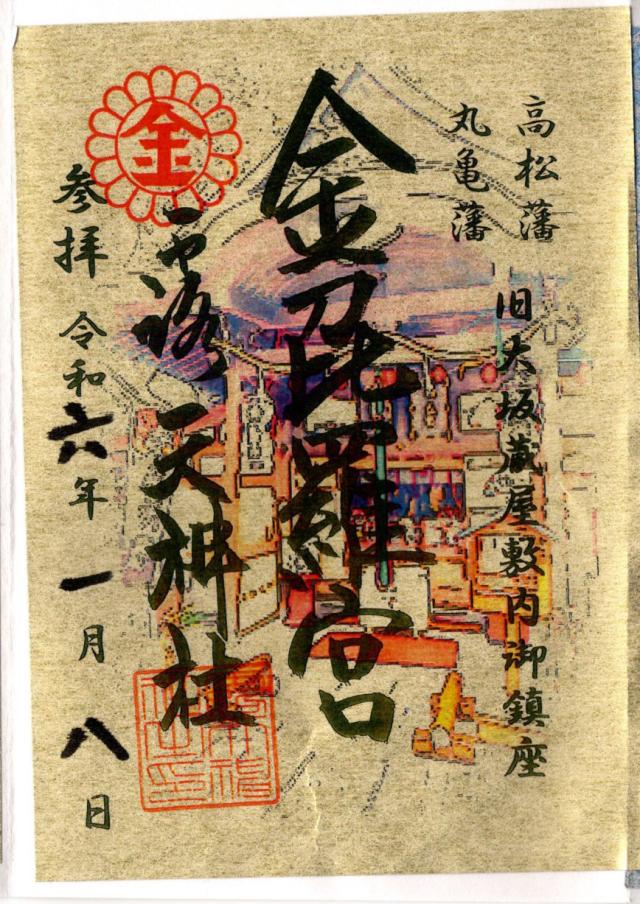 高松藩
丸亀藩
旧大坂蔵屋敷内御鎮座
金刀毘羅宮
露天神社
金
参拝 令和六年一月八日